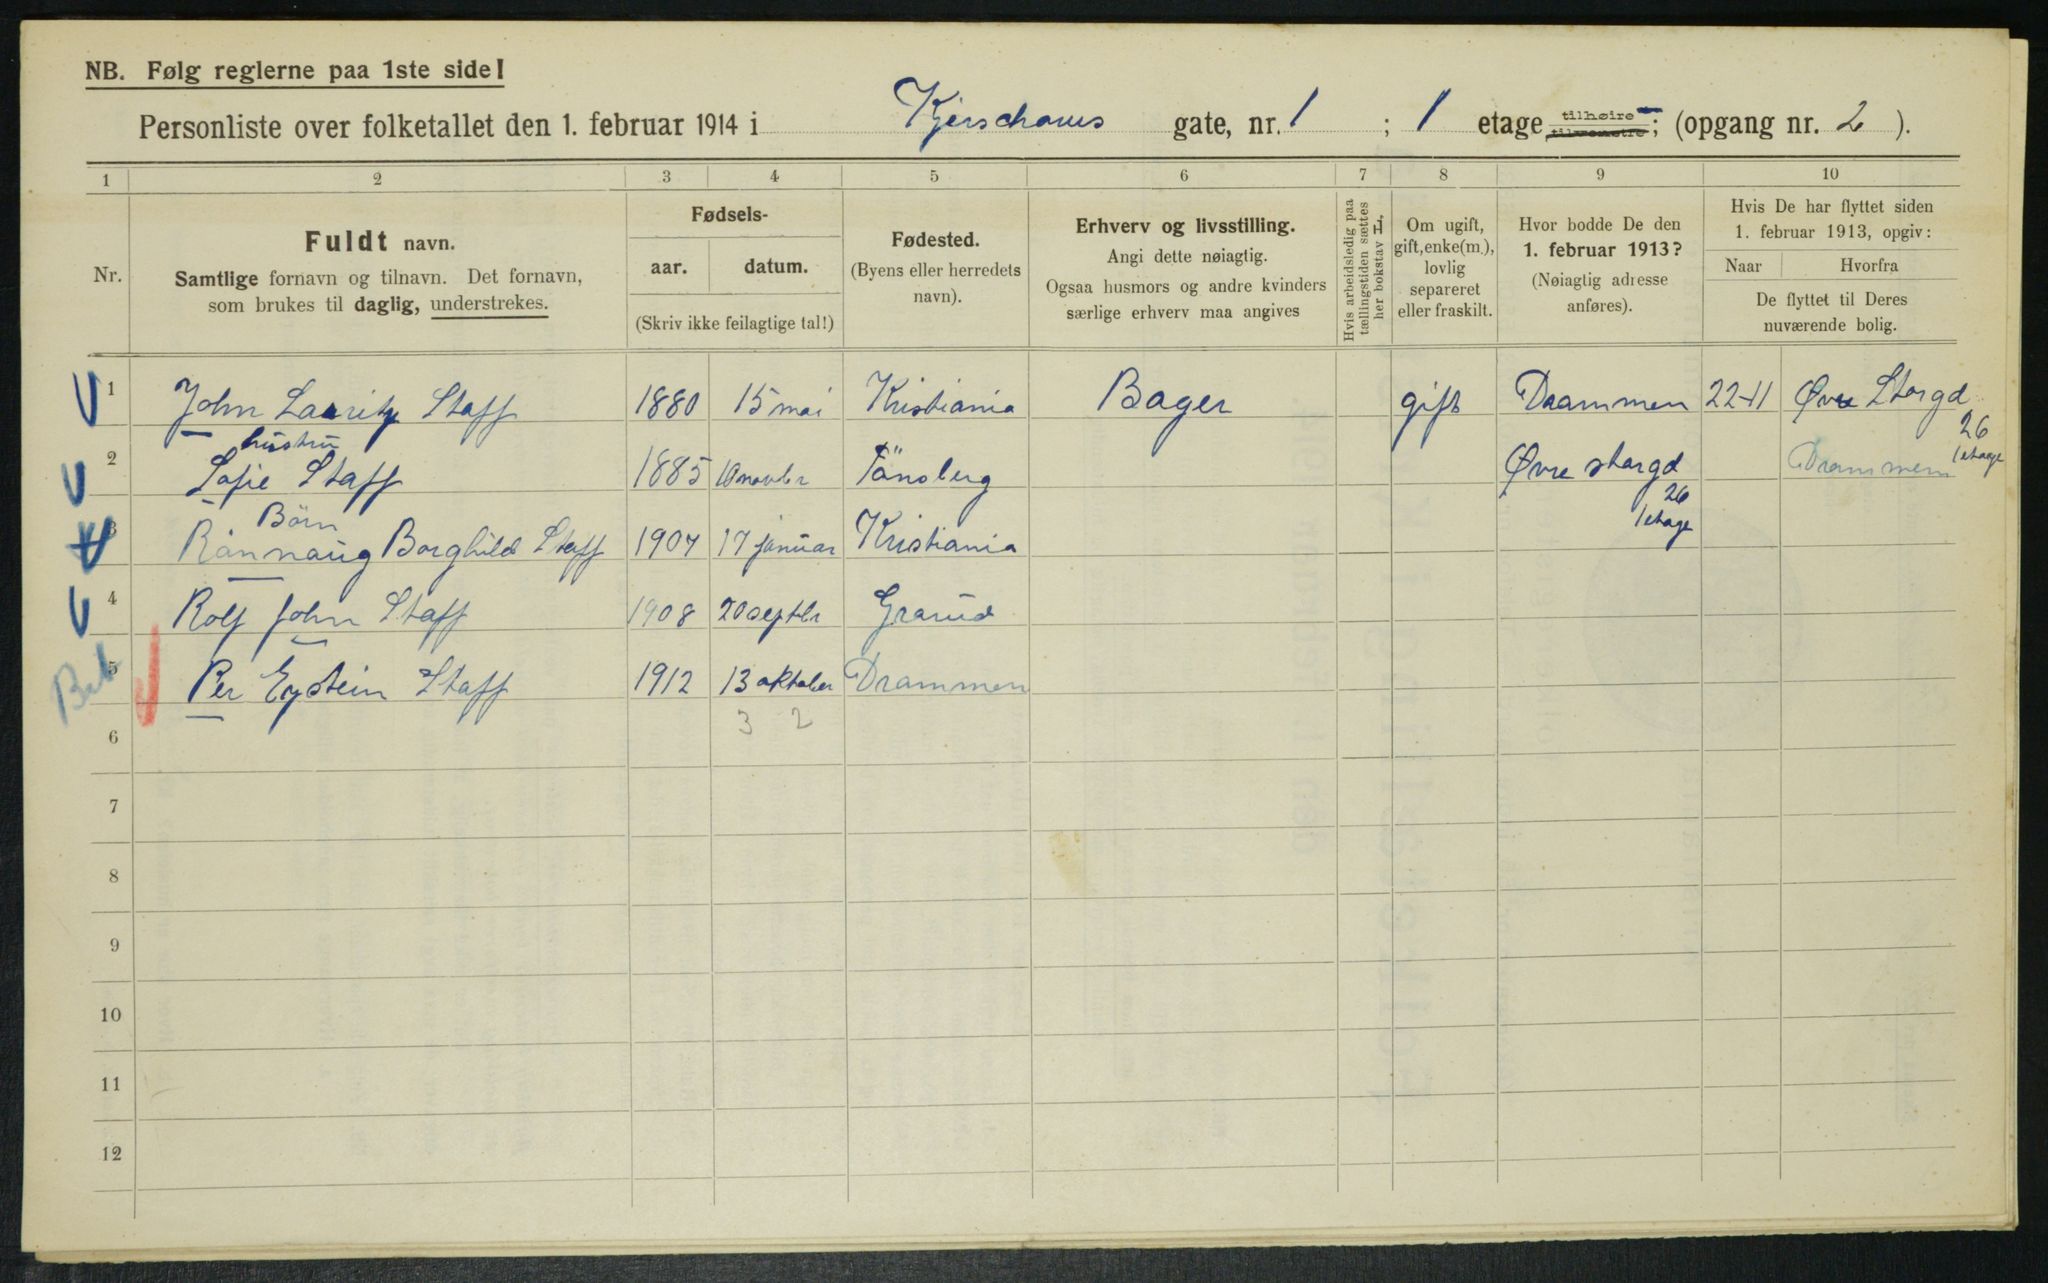 NB. Følg reglerne paa 1ste side!
Personliste over folketallet den 1. februar 1914 i Kjerschows gate, nr. 1 ; 1 etage tilhøire tilvenstre; (opgang nr. 2 ).
1 2 3 4 5 6 7 8 9 10
Nr.
Fuldt navn.
Samtlige fornavn og tilnavn. Det fornavn,
som brukes til daglig, understrekes.
Fødsels-
aar. datum.
(Skriv ikke feilagtige tal!)
Fødested.
(Byens eller herredets
navn).
Erhverv og livsstilling.
Angi dette nøiagtig.
Ogsaa husmors og andre kvinders
særlige erhverv maa angives
Hvis arbeidsledig paa
tællingstiden sættes
her bokstav L.
Om ugift,
gift, enke(m.),
lovlig
separeret
eller fraskilt.
Hvor bodde De den
1. februar 1913?
(Nøiagtig adresse
anføres).
Hvis De har flyttet siden
1. februar 1913, opgiv:
Naar Hvorfra
De flyttet til Deres
nuværende bolig.
1 John Lauritz Staff 1880 15 mai Kristiania Bager gift Drammen 22-11 Øvre Storgd
26
1 etage
hustru
2 Sofie Staff 1885 10 novbr Tönsberg Øvre storgd Drammen
26
1 etage
Börn
3 Rannaug Borghild Staff 1907 17 januar Kristiania
4 Rolf John Staff 1908 20 septbr Grorud
5 Per Eystein Staff 1912 13 oktober Drammen
3 2
6
7
8
9
10
11
12